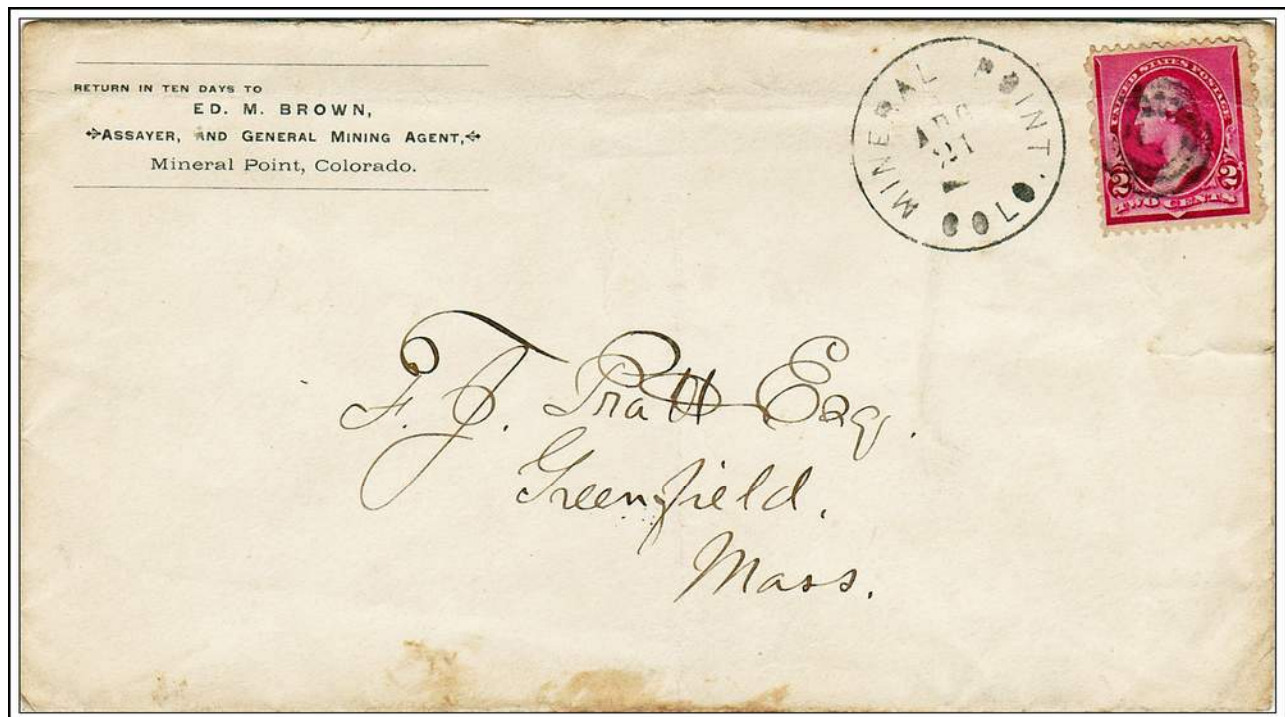 RETURN IN TEN DAYS TO
ED. M. BROWN,
ASSAYER, AND GENERAL MINING AGENT,
Mineral Point, Colorado.
MINERAL POINT, COLO.
21
UNITED STATES POSTAGE
2 2
TWO CENTS
F. J. Pratt Esq.
Greenfield,
Mass.